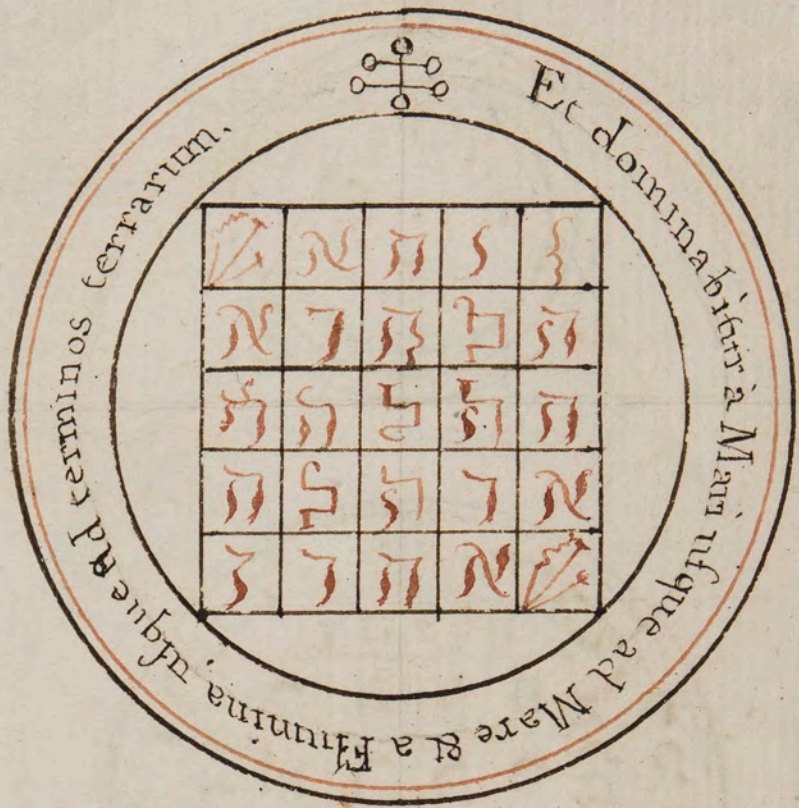 Et dominabitur à Mari uſque ad Mare & a Flumina, uſque ad terminos terrarum.
ו ה א
ה ר א
ה ה ה
א ר ה ה
א ה ר ז